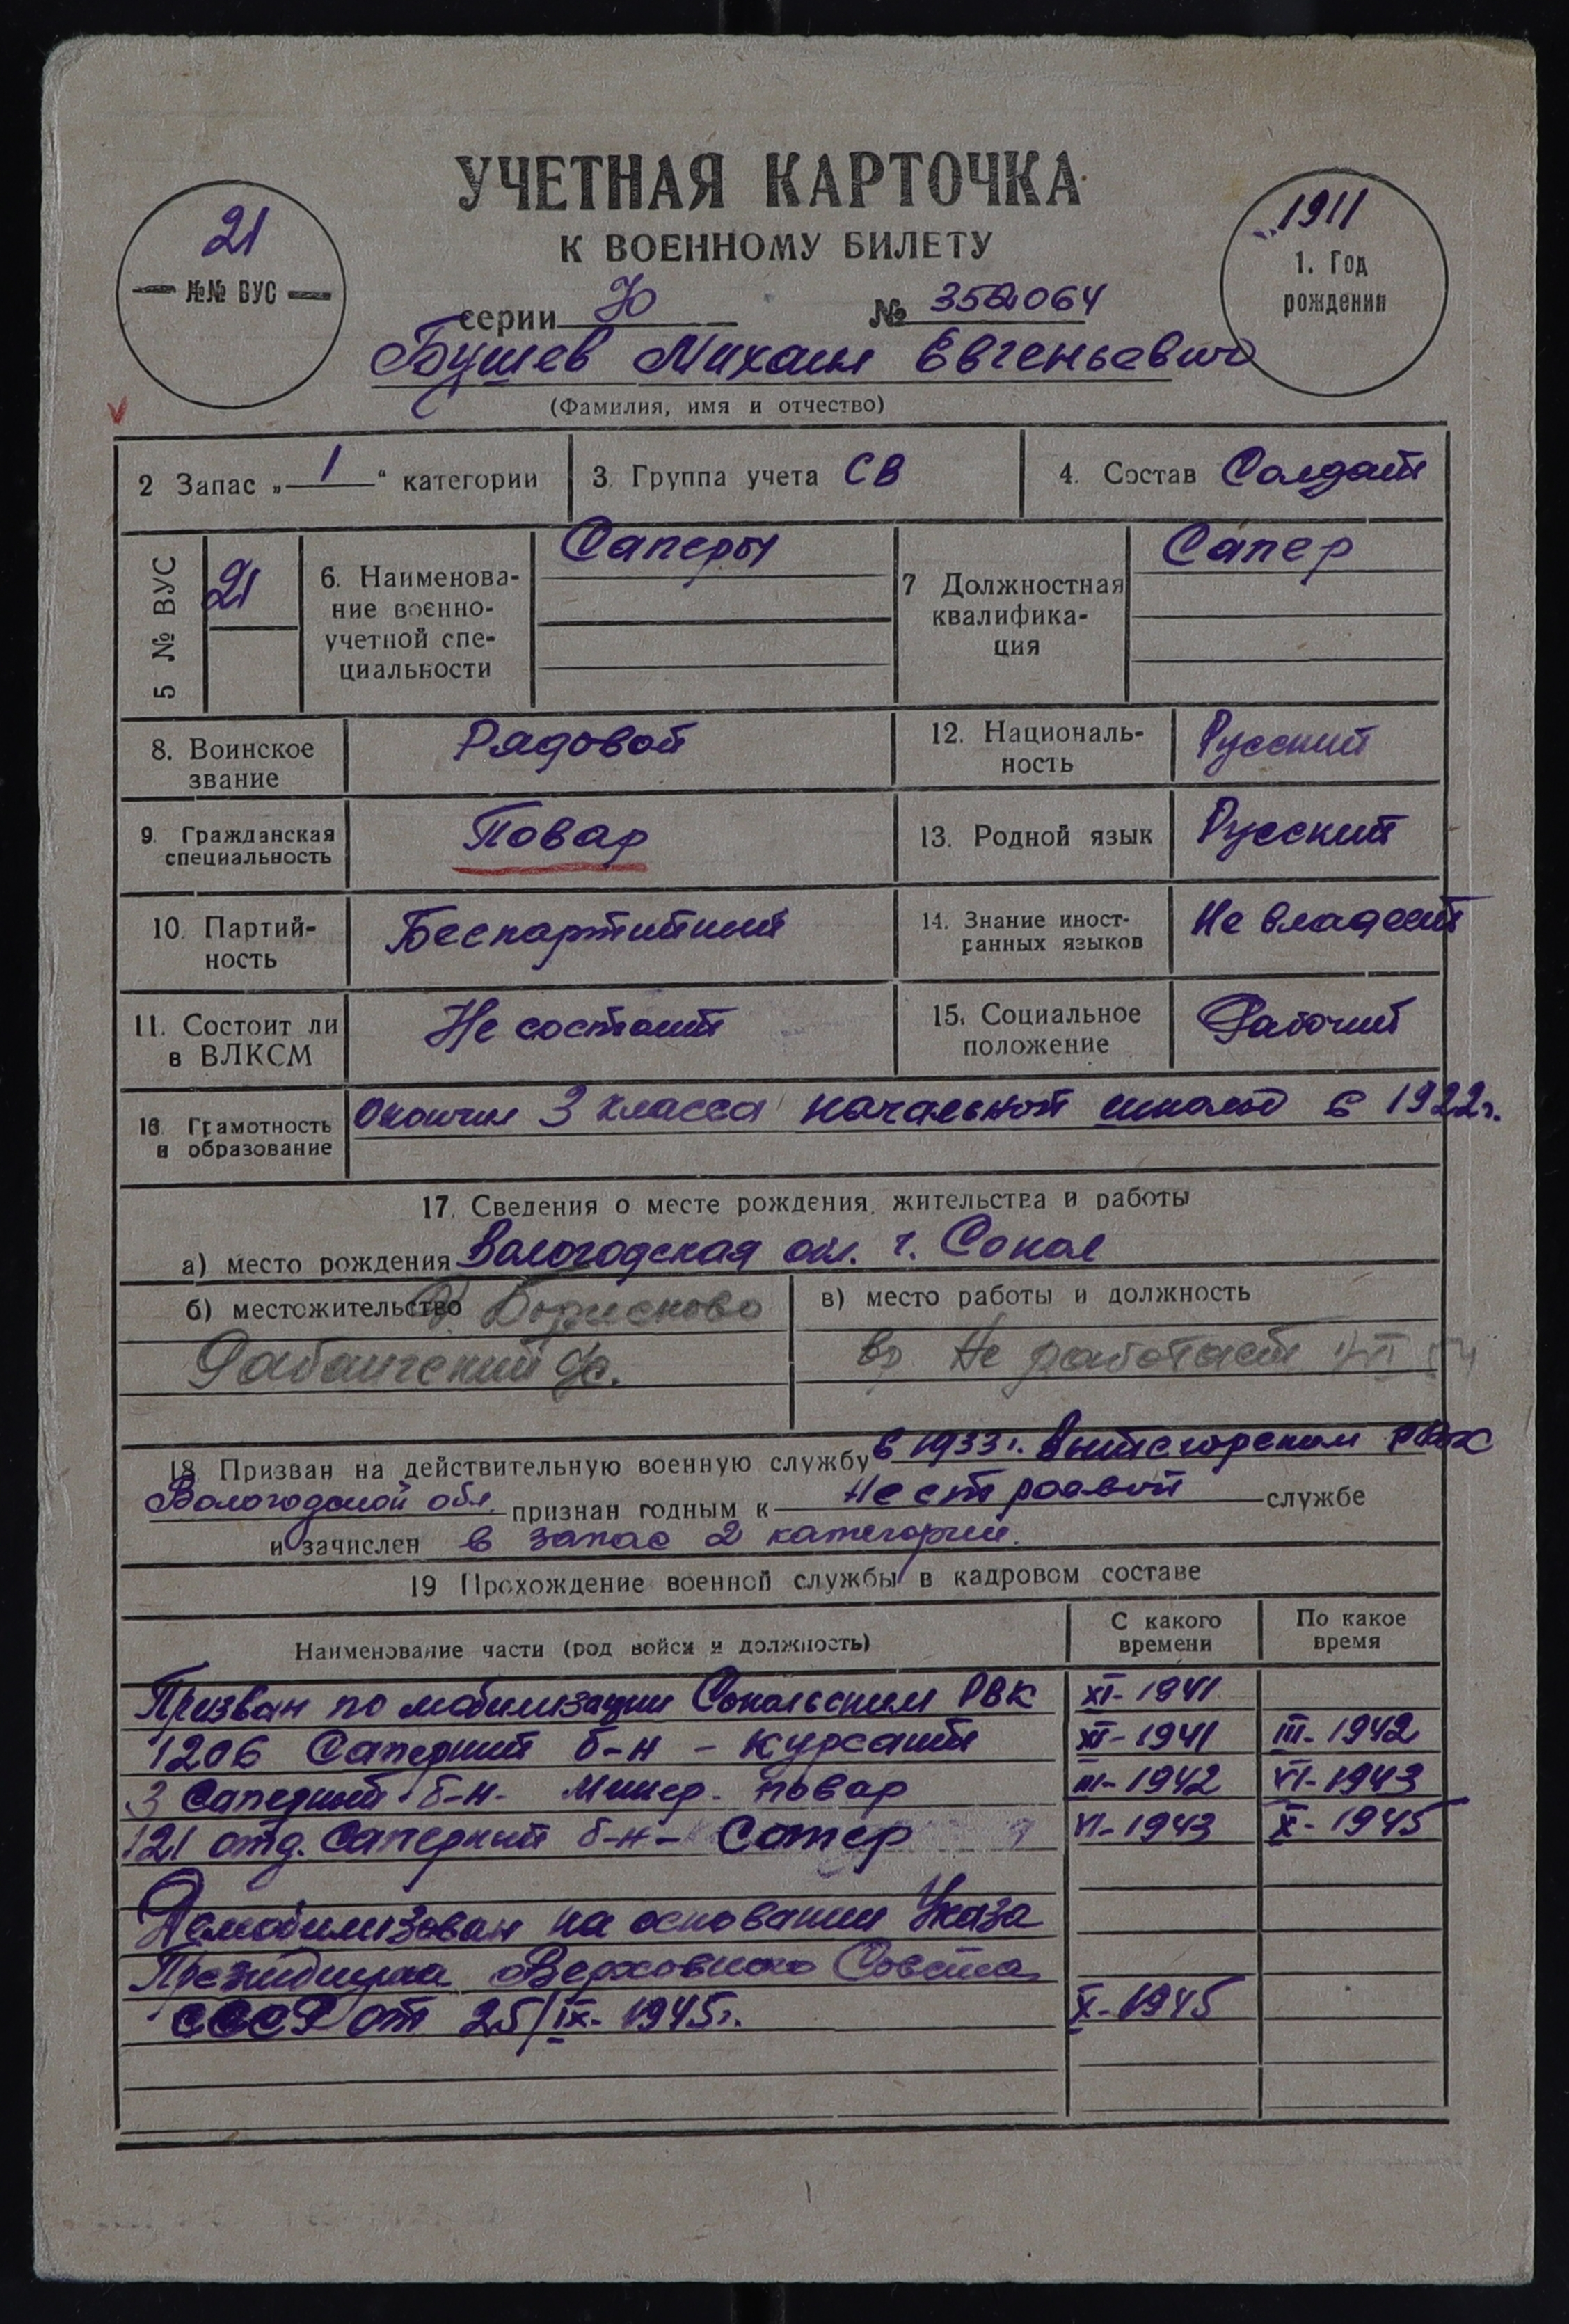 УЧЕТНАЯ КАРТОЧКА
К ВОЕННОМУ БИЛЕТУ
21
№№ ВУС
1911
1. Год
рождения
серии Ю № 352064
Бушев Михаил Евгеньевич
(Фамилия, имя и отчество)
2 Запас „ 1 “ категории
3. Группа учета СВ
4. Состав Солдат
5 № ВУС
21
6. Наименова-
ние военно-
учетной спе-
циальности
Саперы
7 Должностная
квалифика-
ция
Сапер
8. Воинское
звание
Рядовой
12. Националь-
ность
Русский
9. Гражданская
специальность
Повар
13. Родной язык
Русский
10. Партий-
ность
Беспартийный
14. Знание иност-
ранных языков
Не владеет
11. Состоит ли
в ВЛКСМ
Не состоит
15. Социальное
положение
Рабочий
16. Грамотность
и образование
Окончил 3 класса начальной школы в 1922г.
17. Сведения о месте рождения, жительства и работы
а) место рождения Вологодская обл. г. Сокол
б) местожительство д. Борисково
Рабангский с/с.
в) место работы и должность
вр не работает
18 Призван на действительную военную службу в 1933г. Вытегорском РВК
Вологодской обл. признан годным к нестроевой службе
и зачислен в запас 2 категории.
19 Прохождение военной службы в кадровом составе
Наименование части (род войск и должность)
С какого
времени
По какое
время
Призван по мобилизации Сокольским РВК XI-1941
1206 Саперный б-н - курсант XI-1941 III-1942
3 Саперный б-н. Минер. повар III-1942 VI-1943
121 отд. Саперный б-н - Сапер VI-1943 X-1945
Демобилизован на основании Указа
Президиума Верховного Совета
СССР от 25/IX-1945г. X-1945